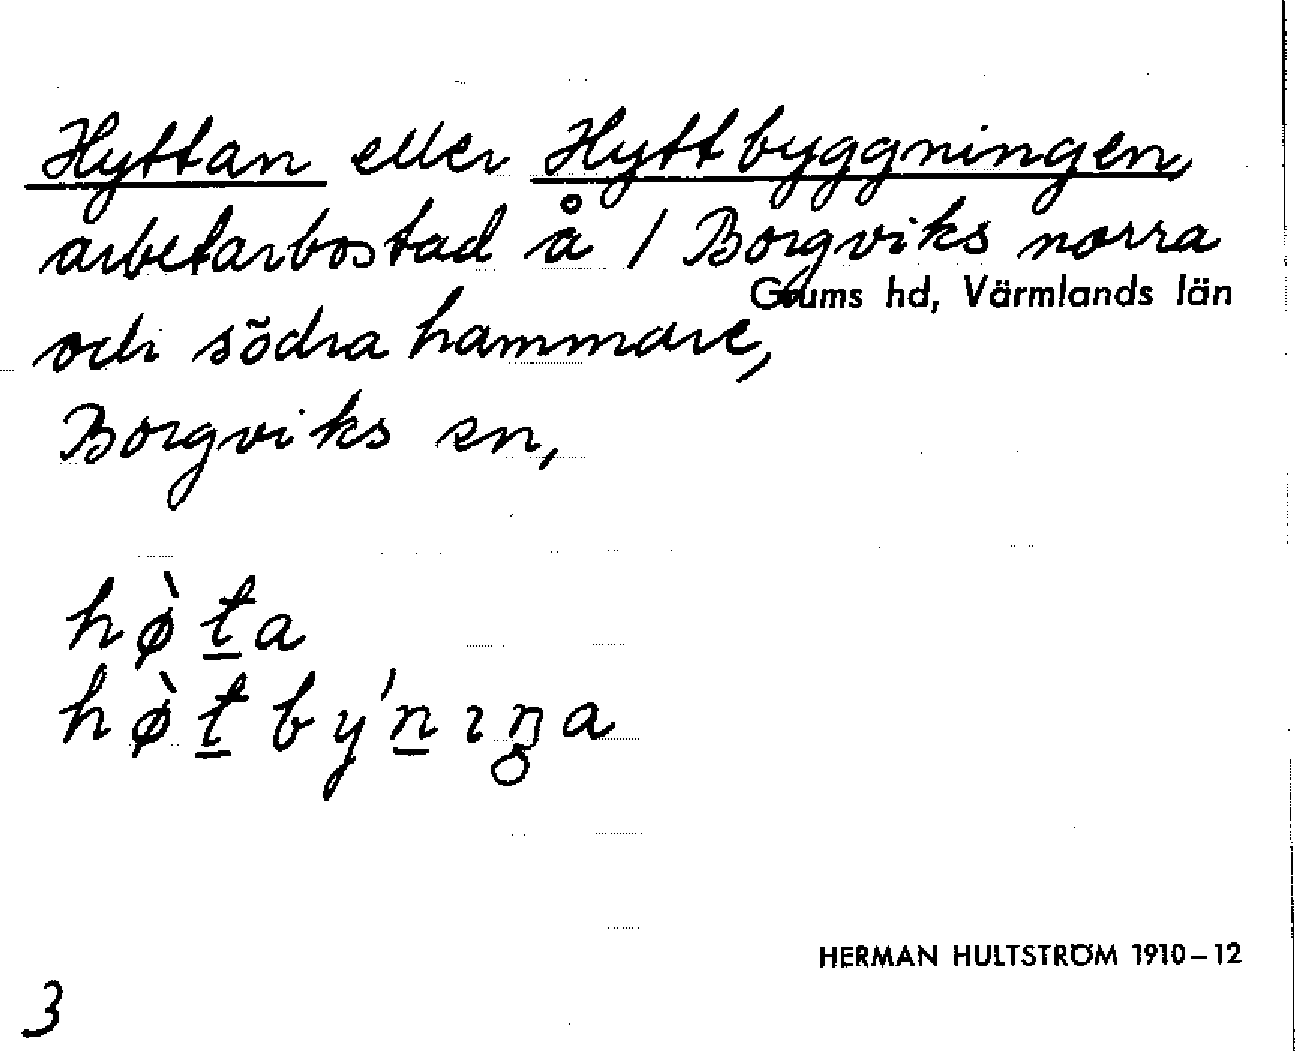 Hyttan eller Hyttbyggningen,
arbetarbostad å / Borgviks norra
Grums hd, Värmlands län
och södra hammare,
Borgviks sn,
hø̀t̲a
hø̀t̲by'n̲ıŋa
HERMAN HULTSTRÖM 1910–12
3